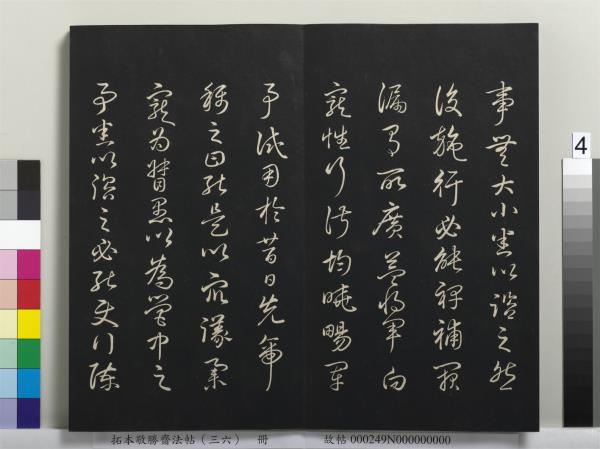 事無大小悉以諮之然
後施行必能裨補闕
漏有所廣益將軍向
寵性行淑均曉暢軍
事試用於昔日先帝
稱之曰能是以眾議舉
寵為督愚以為營中之
事悉以諮之必能使行陳
4
拓本敬勝齋法帖（三六）　冊　故帖 000249N000000000